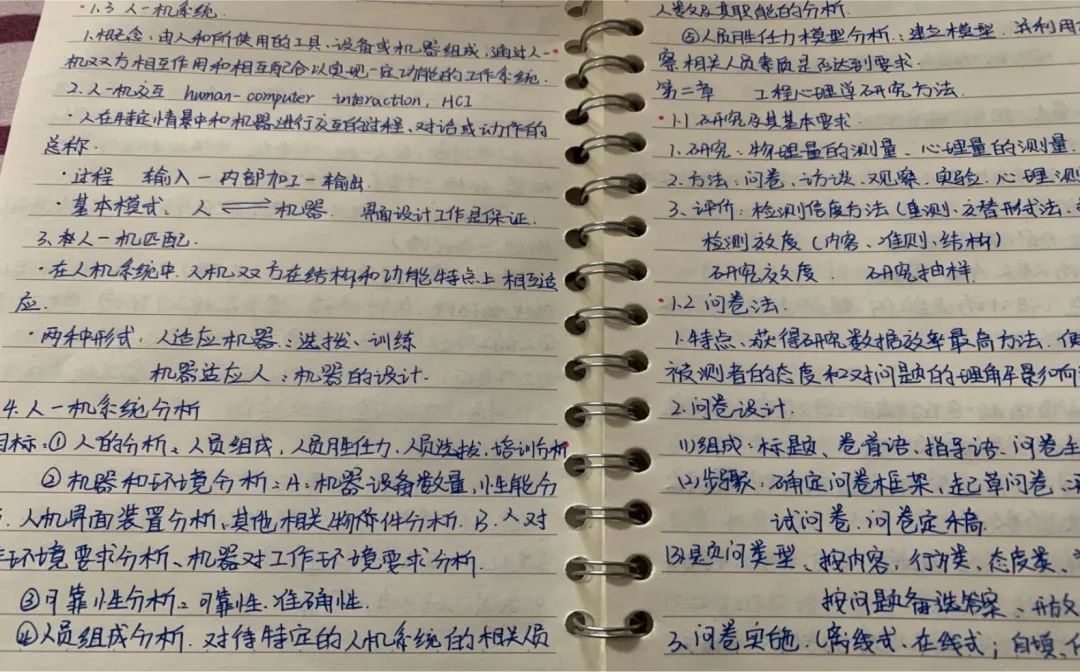 1.3 人一机系统.
1.概念:由人和所使用的工具、设备或机器组成,通过人一
机双方相互作用和相互配合以实现一定功能的工作系统.
2.人一机交互 human-computer interaction, HCI
·人在特定情景中和机器进行交互的过程、对话或动作的
总称.
·过程 输入一内部加工一输出.
·基本模式:人 ⇌ 机器. 界面设计工作是保证.
3.人一机匹配.
·在人机系统中.人机双方在结构和功能特点上相互适
应.
·两种形式:人适应机器:选拔、训练
机器适应人:机器的设计.
4.人一机系统分析
目标:①人的分析:人员组成,人员胜任力、人员选拔,培训分析
②机器和环境分析:A:机器设备数量,性能分
人机界面装置分析、其他相关物件分析.B.人对
环境要求分析、机器对工作环境要求分析.
③可靠性分析:可靠性、准确性.
④人员组成分析.对待特定的人机系统的相关人员
人数及其职能的分析.
⑤人员胜任力模型分析:建立模型.并利用
察相关人员素质是否达到要求.
第二章 工程心理学研究方法.
1.1 研究及其基本要求
1.研究:物理量的测量、心理量的测量.
2.方法:问卷、访谈、观察、实验.心理测
3、评价:检测信度方法(重测、交替形式法、
检测效度(内容、准则、结构)
研究效度 研究抽样.
1.2 问卷法.
1.特点、获得研究数据效率最高方法.
被测者的态度和对问题的理解影响
2.问卷设计.
(1)组成:标题、卷首语、指导语、问卷主
(2)步骤:确定问卷框架、起草问卷、
试问卷.问卷定稿.
(3)提问类型、按内容:行为类、态度类、
按问题备选答案:开放
3、问卷实施.(离线式、在线式;自填、